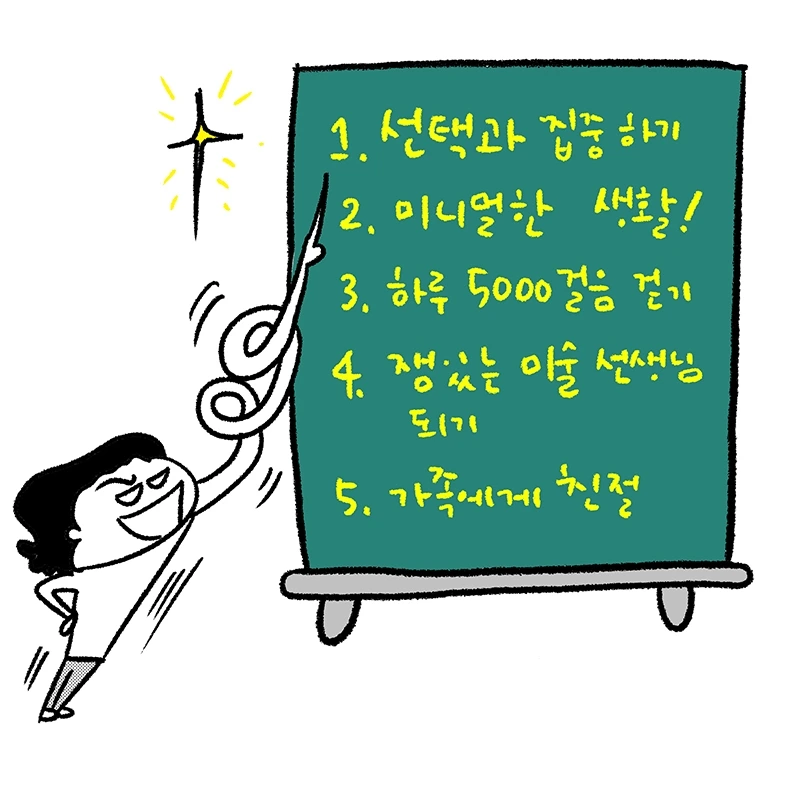 1. 선택과 집중하기
2. 미니멀한 생활!
3. 하루 5000걸음 걷기
4. 쟁있는 미술 선생님
되기
5. 가족에게 친절